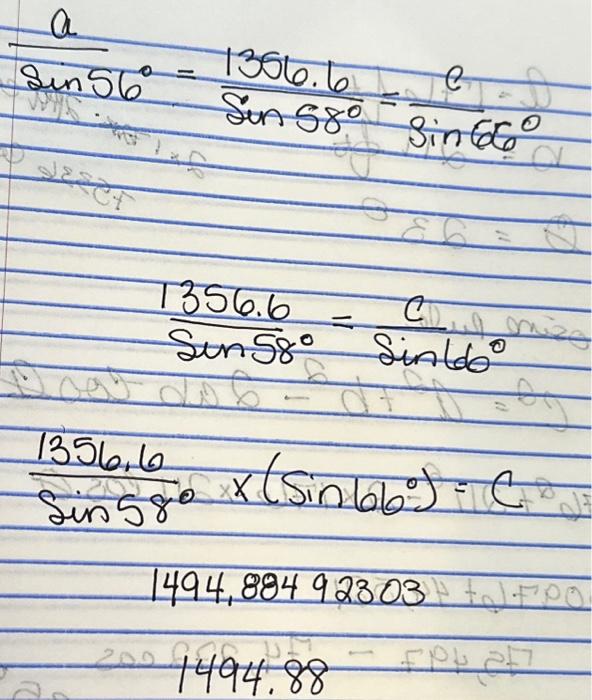 a/sin56° = 1356.6/sin58° = c/sin66°
1356.6/sin58° = c/sin66°
1356.6/sin58° x (sin66°) = C
1494.88492303
1494.88